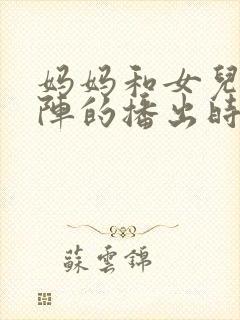 妈妈和女兒
陣的播出時
蘇雲錦